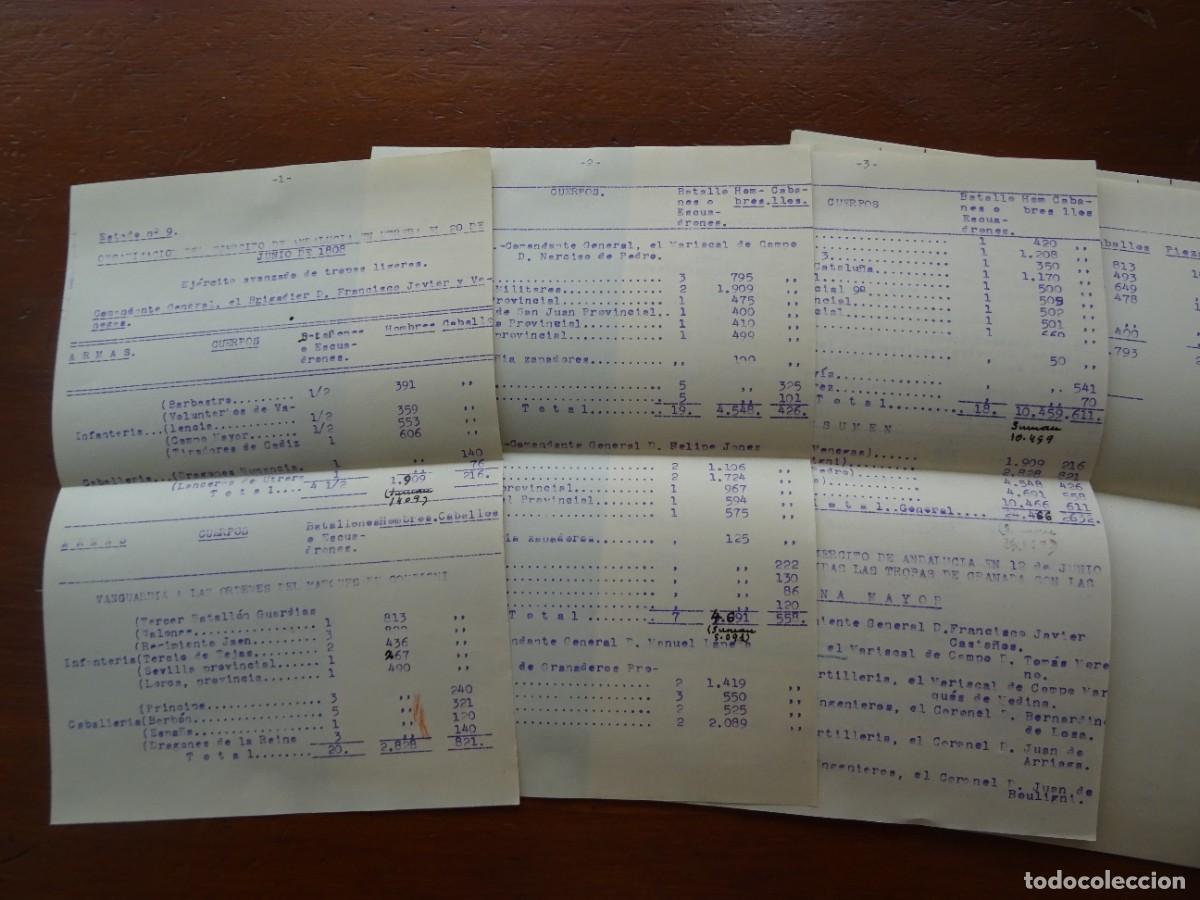 -1-
Estado nº 9.
ORGANIZACION DEL EJERCITO DE ANDALUCIA EN UTRERA EL 20 DE
JUNIO DE 1808
Ejército avanzado de tropas ligeras.
Comandante General, el Brigadier D. Francisco Javier y Ve-
negas.
A R M A S. CUERPOS Batallones Hombres Caballo
o Escua-
drones.
(Barbastro......... 1/2 391 ,,
(Voluntarios de Va-
Infantería...(lencia......... 1/2 359 ,,
(Campo Mayor....... 1/2 553 ,,
(Tiradores de Cadiz 1 606 ,,
Caballería...(Dragones Numancia. 1 ,, 140
(Lanceros de Utrera 1 ,, 76
T o t a l.... 4 1/2 1.909 216.
(Suman
1409)
A R M A S CUERPOS Batallones Hombres. Caballos
o Escua-
drones.
VANGUARDIA A LAS ORDENES DEL MARQUES DE COUPIGNI
(Tercer Batallón Guardias
(Valonas........... 1 813 ,,
(Regimiento Jaen... 3 ,,
Infantería(Tercio de Tejas.... 2 436 ,,
(Sevilla provincial..... 1 267 ,,
(Lorca, provincia....... 1 490 ,,
(Príncipe.......... 3 ,, 240
Caballería(Borbón............ 5 ,, 321
(España............ 1 ,, 120
(Dragones de la Reina 3 ,, 140
T o t a l........ 20. 2.828 821.
-2-
CUERPOS. Batallo Hom- Caba-
nes o bres. llos.
Escua-
drones.
.-Comandante General, el Mariscal de Campo
D. Narciso de Pedro.
3 795 ,,
Militares 2 1.909 ,,
Provincial 1 475 ,,
de San Juan Provincial.. 1 400 ,,
a Provincial 1 410 ,,
provincial 1 499 ,,
ía zapadores ,, 100 ,,
5 ,, 325
5 ,, 101
T o t a l 19. 4.548 426.
.-Comandante General D. Felipe Jones
2 1.106 ,,
2 1.724 ,,
provincial 1 967 ,,
l Provincial 1 594 ,,
1 575 ,,
ía Zapadores ,, 125 ,,
,, 222
,, 130
,, 86
,, 120
T o t a l 7 4.691 558.
(Suman
5.091)
andante General D. Manuel Lape
de Granaderos Pro-
2 1.419 ,,
3 550 ,,
2 525 ,,
2 2.089 ,,
-3-
CUERPOS Batallo Hom Caba-
nes o bres llos
Escua-
drones.
1 420 ,,
3 1 1.208 ,,
Cataluña 1 350 ,,
1 1.170 ,,
cial 9º 1 500 ,,
ncial 1 505 ,,
cial 1 502 ,,
1 501 ,,
1 ,,
, 50 ,,
ía , ,, 541
rez , ,, 70
T o t a l 18. 10.459. 611.
Suman
10.459
SUMEN
Venegas) 1.909 216
igni) 2.828 821
Pedro) 4.548 426
) 4.691 558
10.466 611
T o t a l..General.... 24.466 2632.
EJERCITO DE ANDALUCIA EN 12 de JUNIO
DAS LAS TROPAS DE GRANADA CON LAS
NA MAYOR
niente General D.Francisco Javier
Castaños.
el Mariscal de Campo D. Tomás More
no.
rtillería, el Mariscal de Campo Mar
qués de Medina.
ngenieros, el Coronel D. Bernardino
de Losa.
rtillería, el Coronel D. Juan de
Arriaga.
ngenieros, el Coronel D. Juan de
Bouligni.
aballos Piezas
813
493
649
478
,,
400
.793
todocoleccion